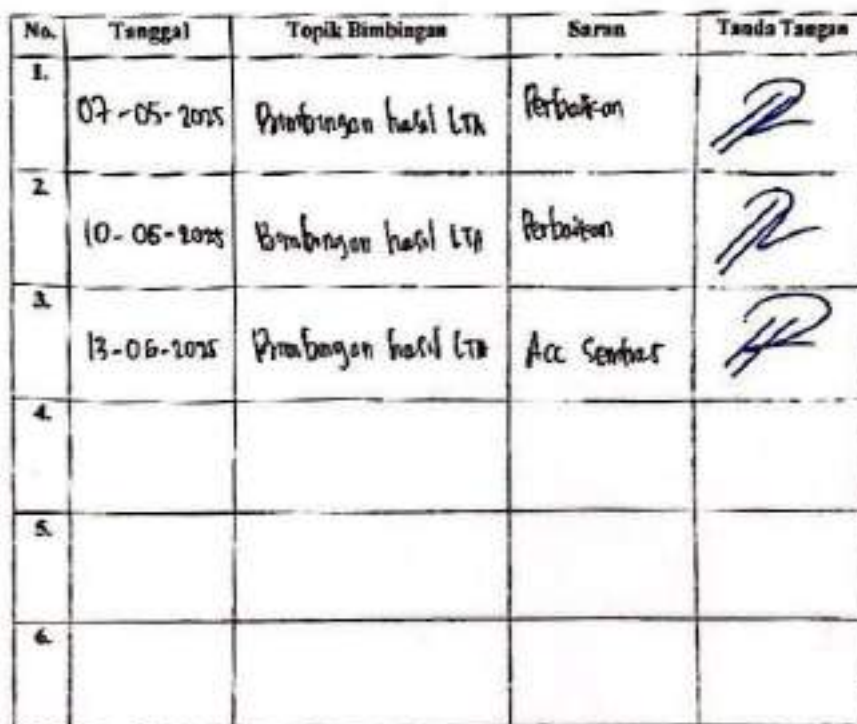 No. Tanggal Topik Bimbingan Saran Tanda Tangan
1. 07-05-2025 Bimbingan hasil LTA Perbaikan
2. 10-06-2025 Bimbingan hasil LTA Perbaikan
3. 13-06-2025 Bimbingan hasil LTA Acc Seminar
4.
5.
6.